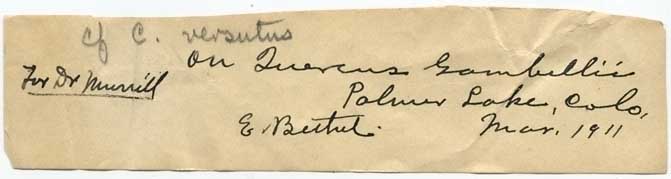 cf C. versutus
On Quercus Gambellii
For Dr Murrill
Palmer Lake, Colo,
E. Bethel. Mar. 1911